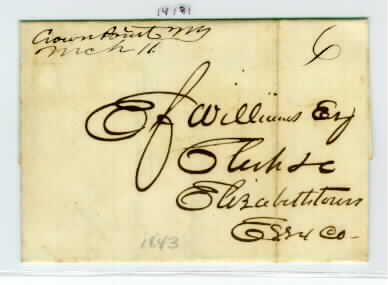 14181
Crown Point NY
Mch 11
6
E f Williams Esq
Clerk &c
Elizabethtown
Essex Co
1843